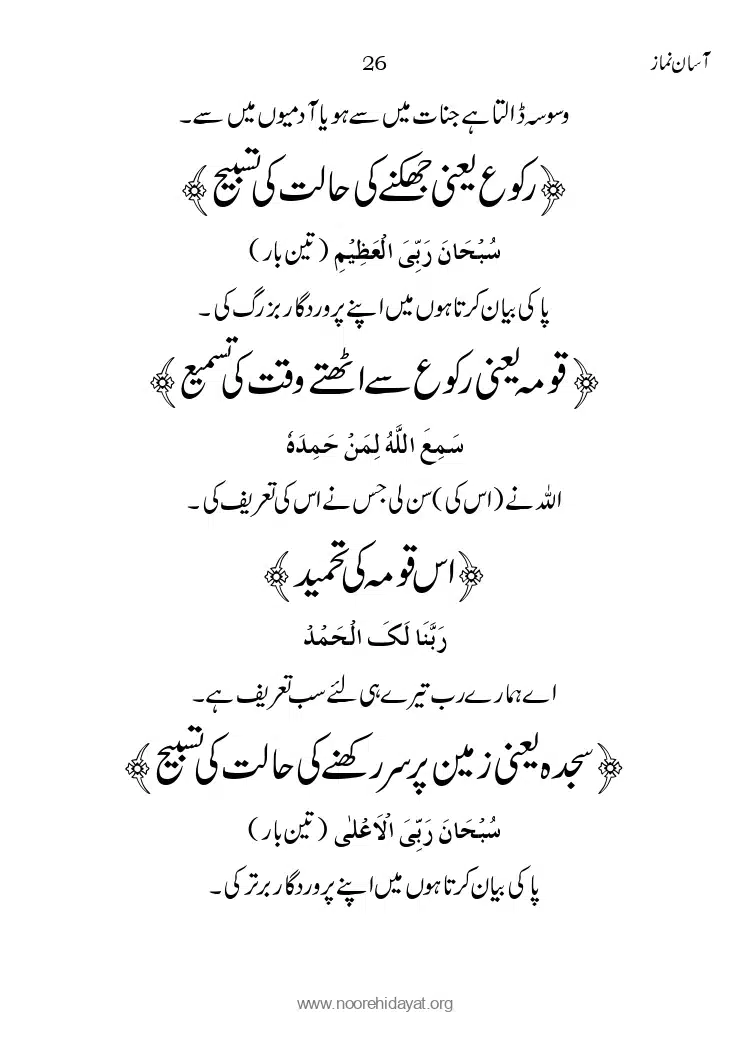 آسان نماز 26
وسوسہ ڈالتا ہے جنات میں سے ہو یا آدمیوں میں سے۔
﴿رکوع یعنی جھکنے کی حالت کی تسبیح﴾
سُبْحَانَ رَبِّیَ الْعَظِیْمِ (تین بار)
پاکی بیان کرتا ہوں میں اپنے پروردگار بزرگ کی۔
﴿قومہ یعنی رکوع سے اٹھتے وقت کی تسمیع﴾
سَمِعَ اللّٰهُ لِمَنْ حَمِدَہٗ
اللہ نے (اس کی) سن لی جس نے اس کی تعریف کی۔
﴿اس قومہ کی تحمید﴾
رَبَّنَا لَکَ الْحَمْدُ
اے ہمارے رب تیرے ہی لئے سب تعریف ہے۔
﴿سجدہ یعنی زمین پر سر رکھنے کی حالت کی تسبیح﴾
سُبْحَانَ رَبِّیَ الْاَعْلٰی (تین بار)
پاکی بیان کرتا ہوں میں اپنے پروردگار برتر کی۔
www.noorehidayat.org